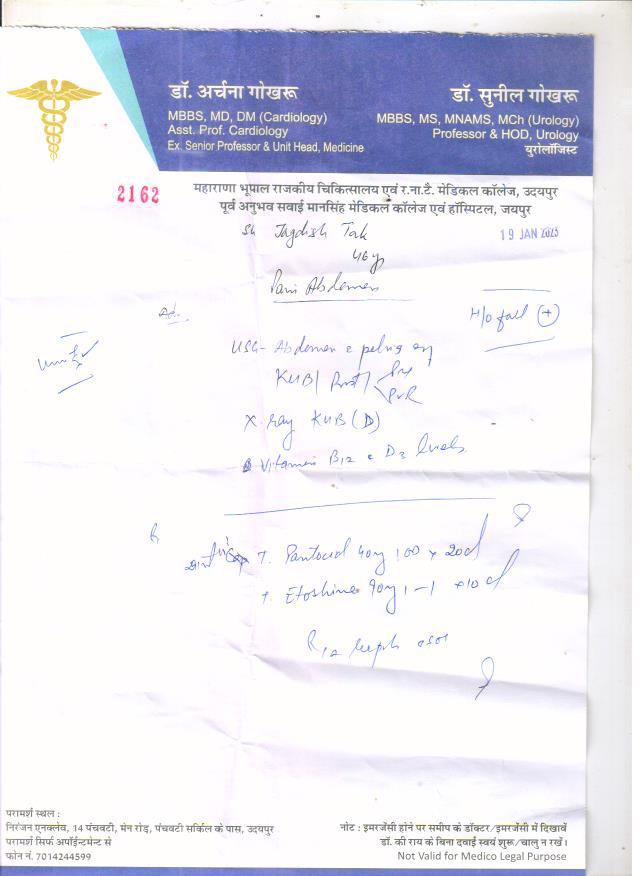 डॉ. अर्चना गोखरू
MBBS, MD, DM (Cardiology)
Asst. Prof. Cardiology
Ex. Senior Professor & Unit Head, Medicine
डॉ. सुनील गोखरू
MBBS, MS, MNAMS, MCh (Urology)
Professor & HOD, Urology
युरोलॉजिस्ट
2162
महाराणा भूपाल राजकीय चिकित्सालय एवं र.ना.टै. मेडिकल कॉलेज, उदयपुर
पूर्व अनुभव सवाई मानसिंह मेडिकल कॉलेज एवं हॉस्पिटल, जयपुर
19 JAN 2023
Sh Jagdish Tak
46 yr
Pain Abdomen
H/o fall (+)
Ad.
USG- Abdomen & pelvis
KUB/ Prost/
PVR
X ray KUB (D)
Vitamin B12 & D3 levels
R
T. Pantocid 40mg 1OD x 20d
T. Etoshine 90mg 1-1 x10d
परामर्श स्थल :
निरंजन एनक्लेव, 14 पंचवटी, मेन रोड़, पंचवटी सर्किल के पास, उदयपुर
परामर्श सिर्फ अपॉईन्टमेन्ट से
फोन नं. 7014244599
नोट : इमरजेंसी होने पर समीप के डॉक्टर/इमरजेंसी में दिखावें
डॉ. की राय के बिना दवाई स्वयं शुरू/चालु न रखें।
Not Valid for Medico Legal Purpose